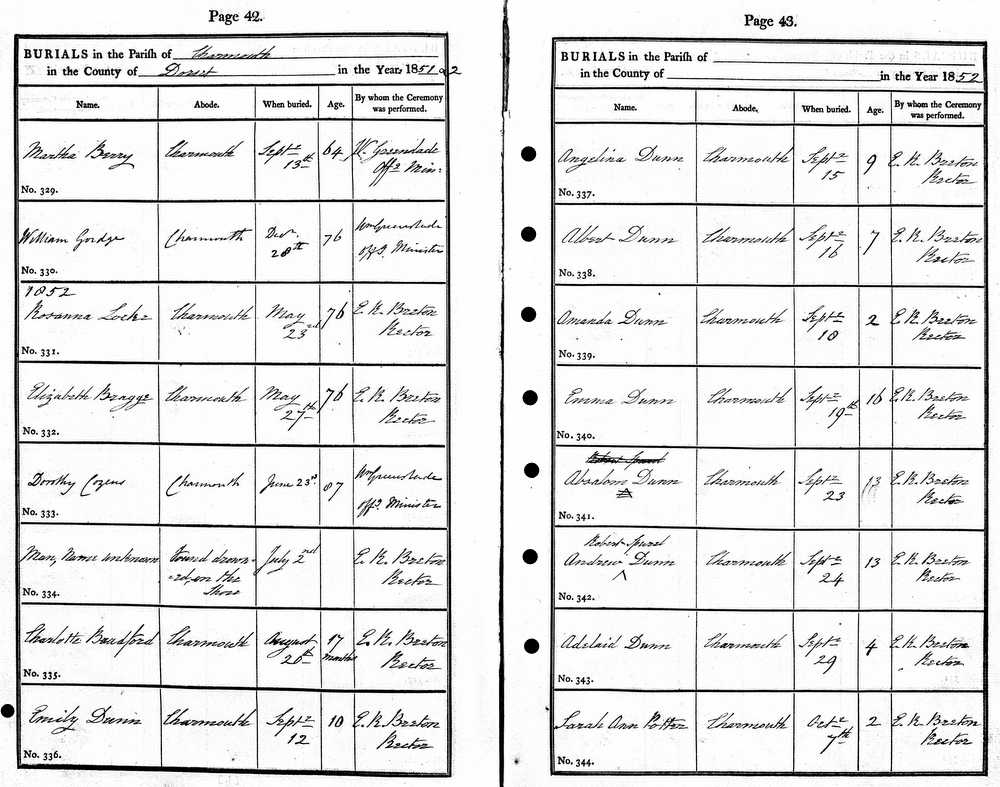 Page 42.
BURIALS in the Parish of Charmouth
in the County of Dorset in the Year 1851 & 2
Name. Abode. When buried. Age. By whom the Ceremony was performed.
Martha Berry Charmouth Sept.r 13th 64 W. Greenslade
Off.g Min:
No. 329.
William Gordge Charmouth Decr. 28th 76 Wm Greenslade
off.g Minister
No. 330.
1852
Rosanna Locke Charmouth May 23rd 76 E. R. Breton
Rector
No. 331.
Elizabeth Bragge Charmouth May 27th 76 E. R. Breton
Rector
No. 332.
Dorothy Cozens Charmouth June 23rd. 87 Wm Greenslade
off.g Minister
No. 333.
Man, Name unknown found drown-
ed, on the
Shore July 2nd E. R. Breton
Rector
No. 334.
Charlotte Bradford Charmouth August 20th 17 months E. R. Breton
Rector
No. 335.
Emily Dunn Charmouth Sept.r 12 10 E. R. Breton
Rector
No. 336.
Page 43.
BURIALS in the Parish of
in the County of in the Year 1852
Name. Abode. When buried. Age. By whom the Ceremony was performed.
Angelina Dunn Charmouth Sept.r 15 9 E. R. Breton
Rector
No. 337.
Albert Dunn Charmouth Sept.r 16 7 E. R. Breton
Rector
No. 338.
Amanda Dunn Charmouth Sept.r 18 2 E. R. Breton
Rector
No. 339.
Emma Dunn Charmouth Sept.r 19th 16 E. R. Breton
Rector
No. 340.
Robert Spurel
Absalom Dunn Charmouth Sept.r 23 13 E. R. Breton
Rector
No. 341.
Robert Spurel
Andrew Dunn Charmouth Sept.r 24 13 E. R. Breton
Rector
No. 342.
Adelaid Dunn Charmouth Sept.r 29 4 E. R. Breton
Rector
No. 343.
Sarah Ann Potter Charmouth Oct.r 7th 2 E. R. Breton
Rector
No. 344.